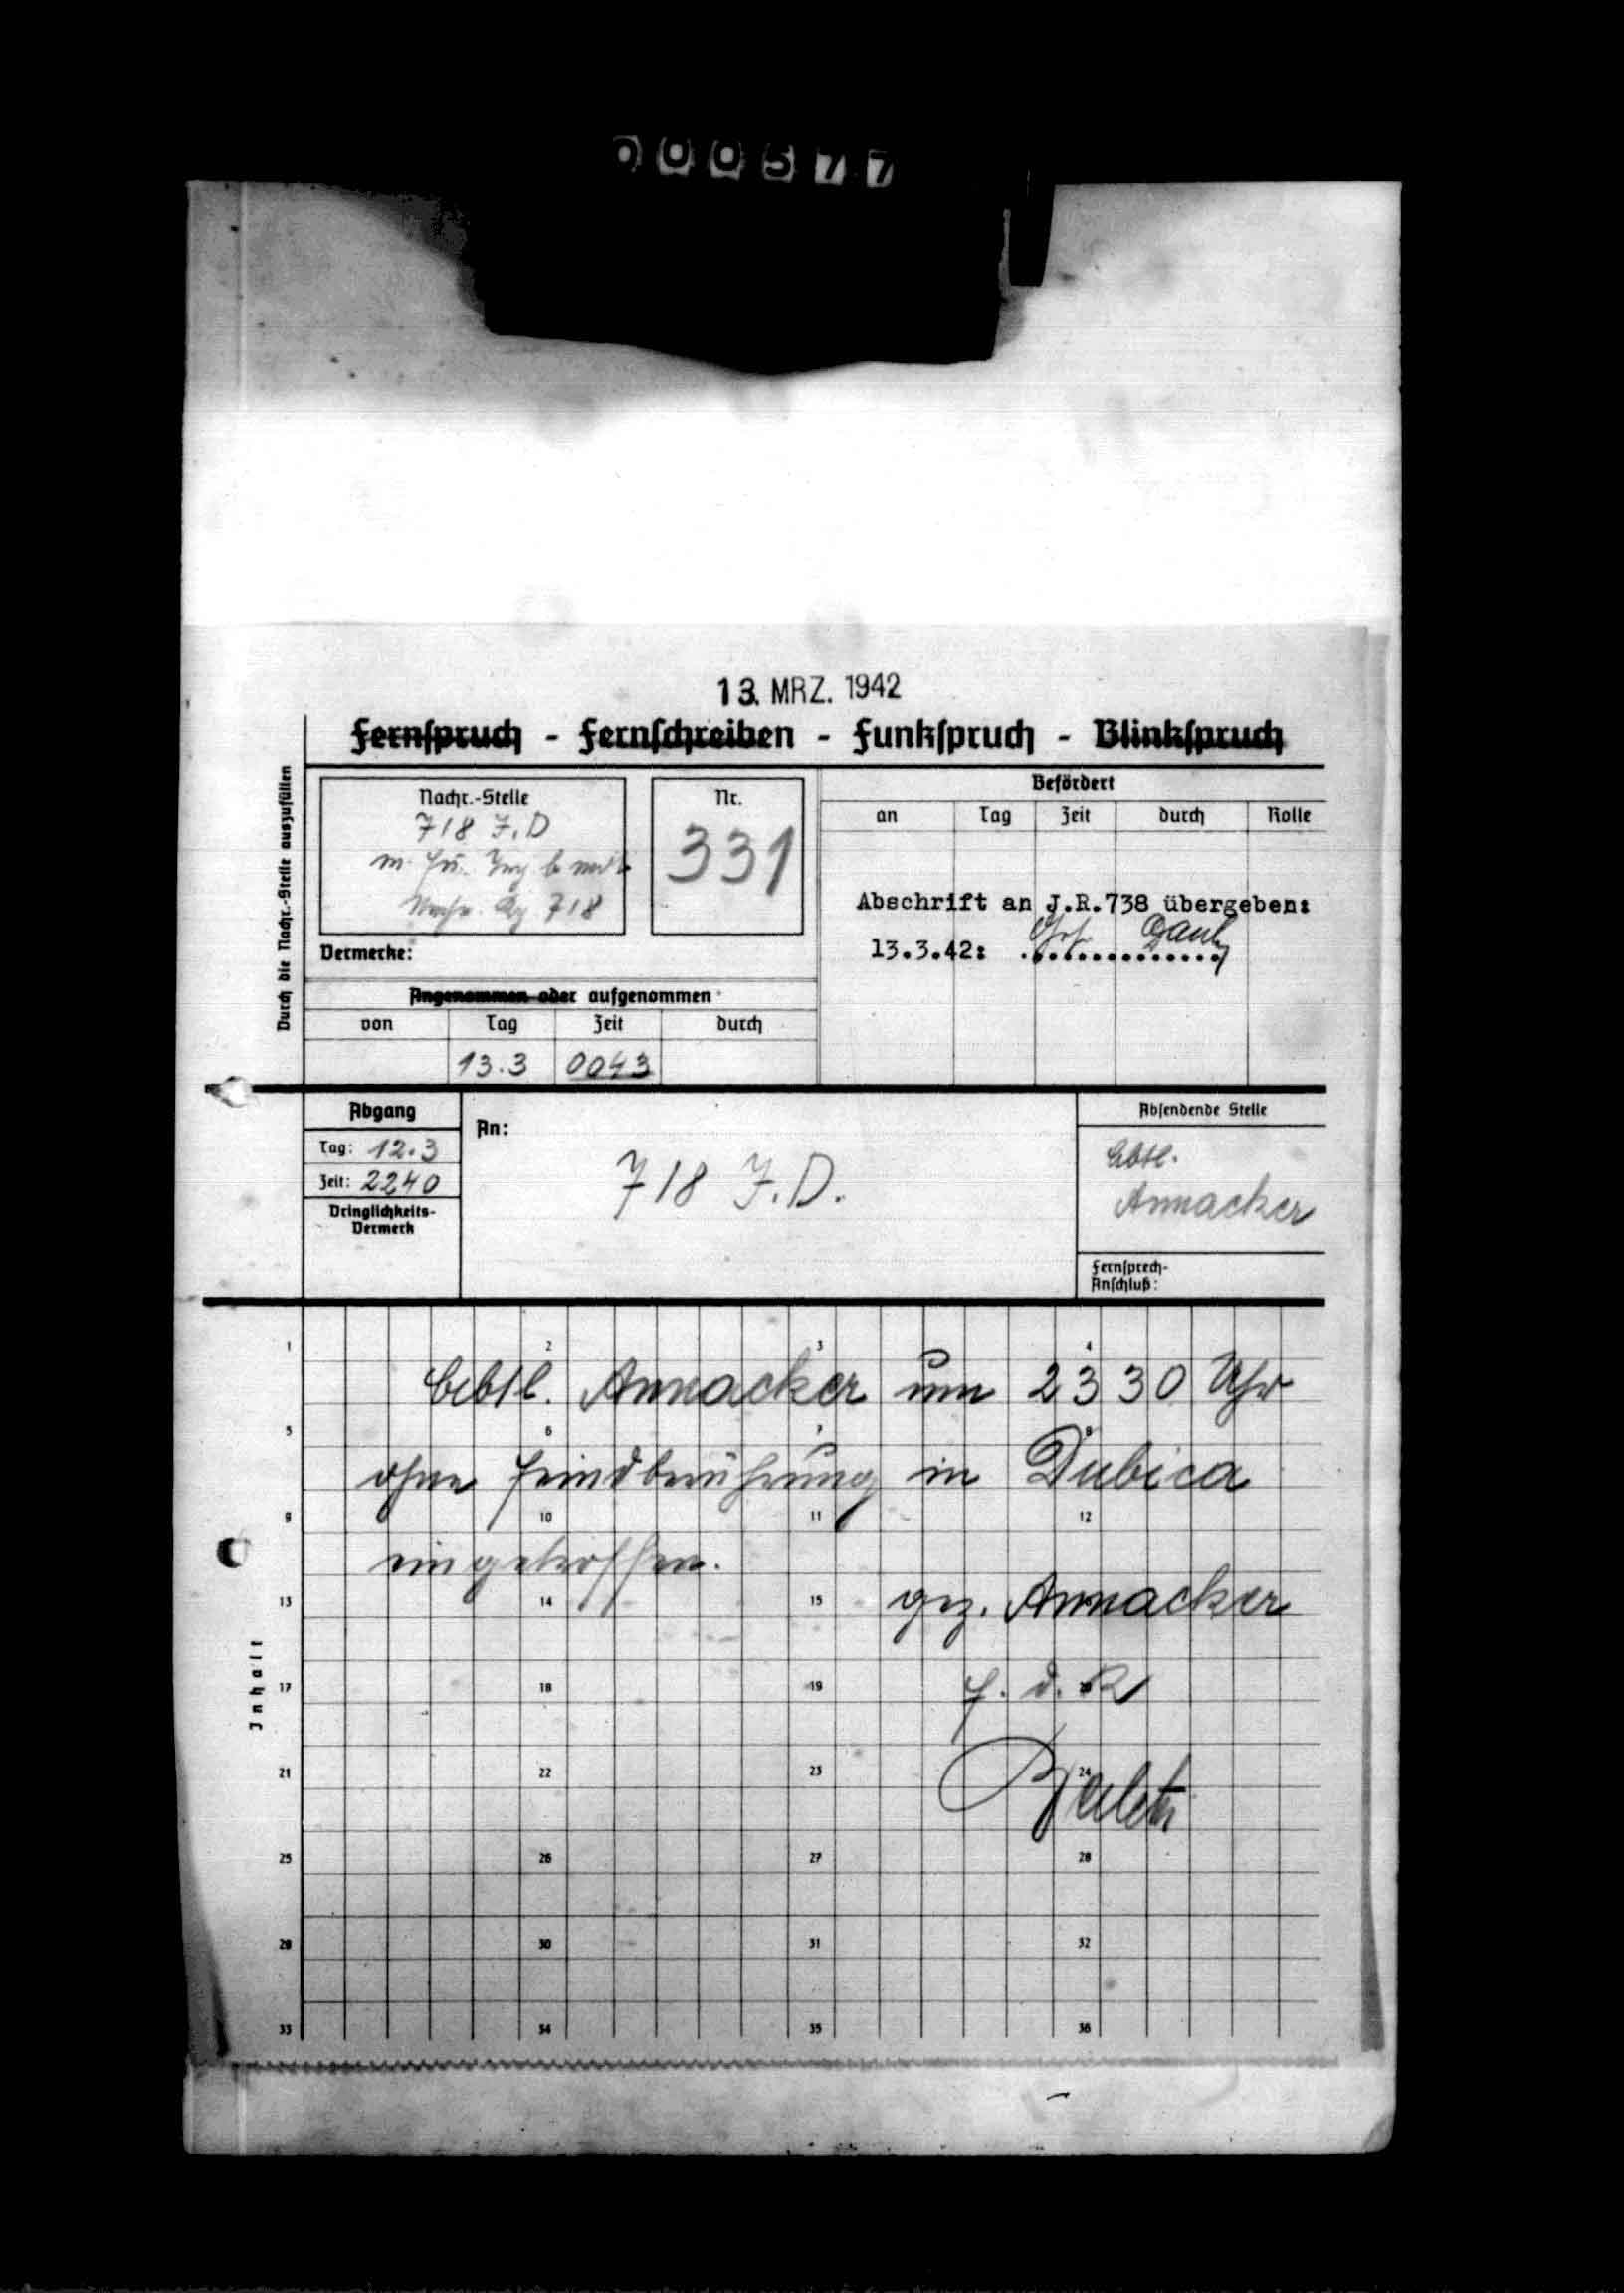 000577
13. MRZ. 1942
Fernspruch - Fernschreiben - Funkspruch - Blinkspruch
Durch die Nachr.-Stelle auszufüllen
Nachr.-Stelle
718 J.D
718
Nr.
331
Vermerke:
Befördert
an Tag Zeit durch Rolle
Abschrift an J.R.738 übergeben:
13.3.42:
Angenommen oder aufgenommen
von Tag Zeit durch
13.3 0043
Abgang
Tag: 12.3
Zeit: 2240
Dringlichkeits-
Vermerk
An:
718 J.D.
Absendende Stelle
Abtl.
Annacker
Fernsprech-
Anschluß:
Inhalt
1 2 3 4
Abtl. Annacker um 2330 Uhr
5 6 7 8
ohne Feindberührung in Dubica
9 10 11 12
eingetroffen.
13 14 15
gez. Annacker
17 18 19
f. d. R
21 22 23 24
25 26 27 28
29 30 31 32
33 34 35 36